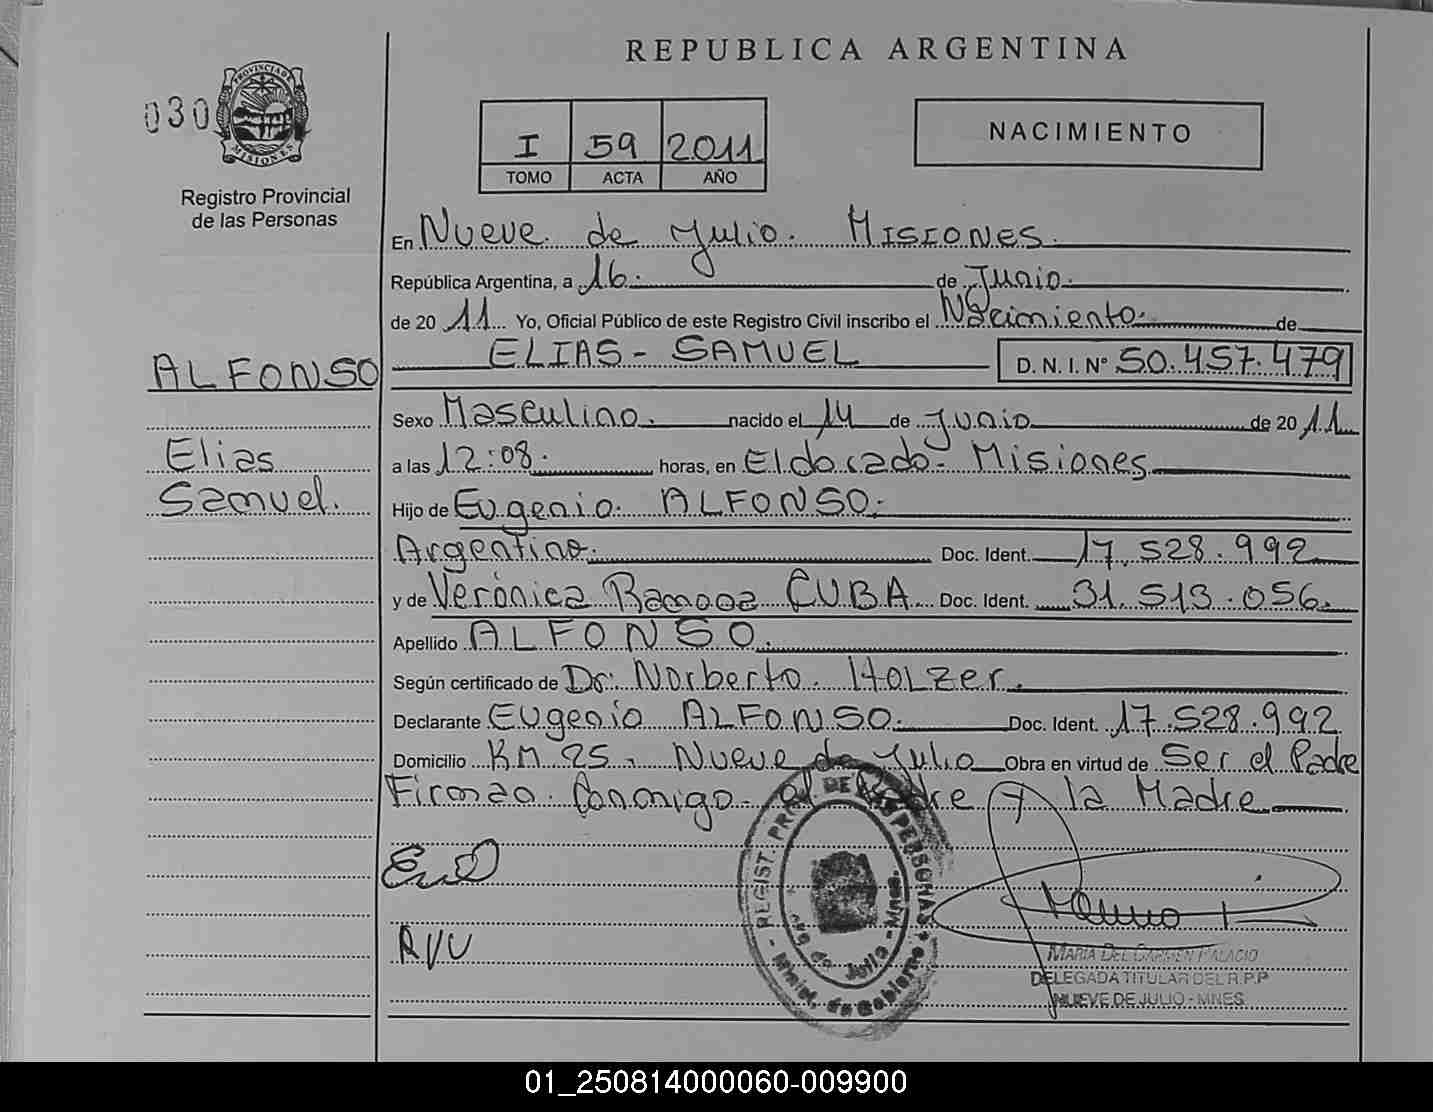 REPUBLICA ARGENTINA
030
PROVINCIA DE MISIONES
Registro Provincial
de las Personas
I 59 2011
TOMO ACTA AÑO
NACIMIENTO
En Nueve de Julio. MISIONES.
República Argentina, a 16. de Junio.
de 20 11 Yo, Oficial Público de este Registro Civil inscribo el Nacimiento. de
ELIAS - SAMUEL D. N. I. N° 50.457.479
ALFONSO
Elias
Samuel.
Sexo Masculino. nacido el 14 de Junio de 20 11
a las 12:08. horas, en Eldorado - Misiones
Hijo de Eugenio. ALFONSO.
Argentino. Doc. Ident. 17.528.992
y de Verónica Ramona CUBA Doc. Ident. 31.513.056.
Apellido ALFONSO.
Según certificado de Dr. Norberto. HOLZer.
Declarante Eugenio ALFONSO. Doc. Ident. 17.528.992
Domicilio KM 25 - Nueve de Julio Obra en virtud de Ser el Padre
Firman Conmigo el Padre y la Madre
REGIST. PROV. DE LAS PERSONAS
Minist. de Gobierno
de Julio - Mnes.
RVC
MARIA DEL CARMEN PALACIO
DELEGADA TITULAR DEL R.P.P
NUEVE DE JULIO - MNES
01_250814000060-009900